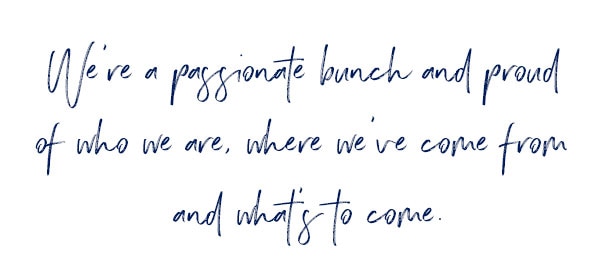 We're a passionate bunch and proud
of who we are, where we've come from
and what's to come.